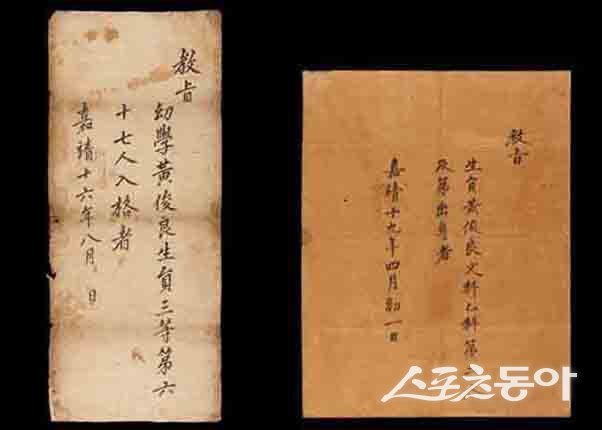 敎旨
幼學黃俊良生員三等第六
十七人入格者
嘉靖十六年八月 日
敎旨
生員黃俊良文科乙科第二
及第出身者
嘉靖十九年四月初一日
스포츠동아